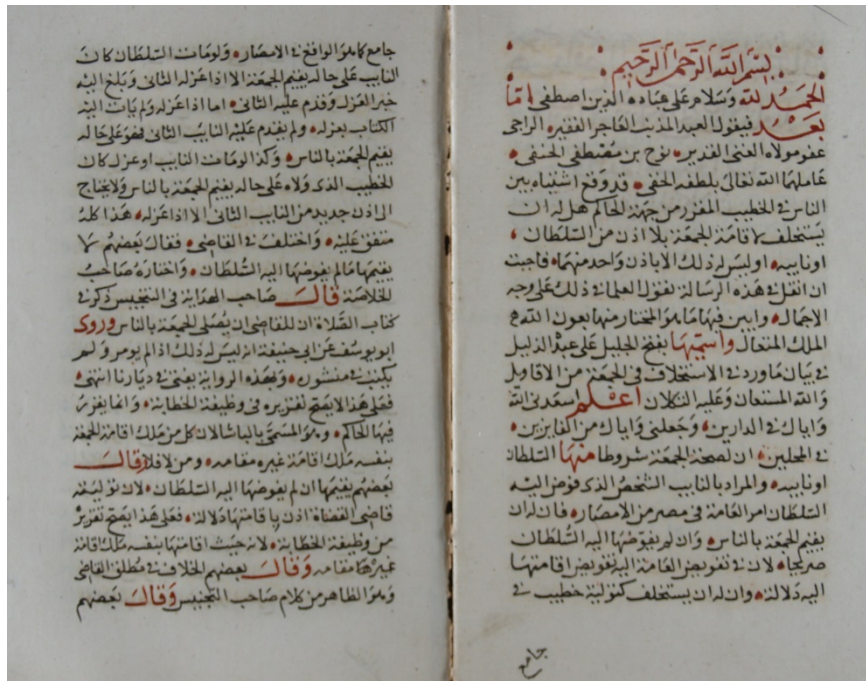 بسم الله الرحمن الرحيم
الحمد لله وسلام على عباده الذين اصطفى اما
بعد فيقول العبد المذنب العاجز الفقير الراجى
عفو مولاه الغنى القدير نوح بن مصطفى الحنفى
عاملهما الله تعالى بلطفه الخفى قد وقع اشتباه بين
الناس فى الخطيب المقرر من جهة الحاكم هل له ان
يستخلف لاقامة الجمعة بلا اذن من السلطان
او نايبه او ليس له ذلك الا باذن واحد منهما فاجبت
ان انقل فى هذه الرسالة نقول العلما فى ذلك على وجه
الاجمال وابين فيها ما هو المختار منها بعون الله
الملك المتعال واسميتها بفتح الجليل على عبده الذليل
فى بيان ما ورد فى الاستخلاف فى الجمعة من الاقاويل
والله المستعان وعليه التكلان اعلم اسعدنى الله
واياك فى الدارين وجعلنى واياك من الفايزين
فى المحلين ان لصحة الجمعة شروطا منها السلطان
او نايبه والمراد بالنايب الشخص الذى فوض اليه
السلطان امر العامة فى مصر من الامصار فان له ان
يقيم الجمعة بالناس وان لم يفوضها اليه السلطان
صريحا لان فى تفويض العامة اليه تفويض اقامتها
اليه دلالة وان له ان يستخلف كتولية خطيب فى
جامع
جامع كما هو الواقع فى الامصار ولو مات السلطان كان
النايب على حاله يقيم الجمعة الا اذا عزله الثانى وبلغ اليه
خبر العزل وقدم عليه الثانى اما اذا عزله ولم يات اليه
الكتاب بعزله ولم يقدم عليه النايب الثانى فهو على حاله
يقيم الجمعة بالناس وكذا لو مات النايب او عزل كان
الخطيب الذى ولاه على حاله يقيم الجمعة بالناس ولا يحتاج
الى اذن جديد من النايب الثانى الا اذا عزله هذا كله
متفق عليه واختلف فى القاضى فقال بعضهم لا
يقيمها مالم يفوضها اليه السلطان واختاره صاحب
الخلاصة قال صاحب الهداية فى التجنيس ذكر فى
كتاب الصلاة ان للقاضى ان يصلى الجمعة بالناس وروى
ابو يوسف عن ابى حنيفة انه ليس له ذلك اذا لم يومر ولم
يكتب فى منشوره وبهذه الرواية يفتى فى ديارنا انتهى
فعلى هذا لا يصح تقريره فى وظيفة الخطابة وانما يقرر
فيها الحاكم وهو المسمى بالباشا لان كل من ملك اقامة الجمعة
بنفسه ملك اقامة غيره مقامه ومن لا فلا وقال
بعضهم يقيمها ان لم يفوضها اليه السلطان لان توليته
قاضى القضاة اذن باقامتها دلالة فعلى هذا يصح تقرير
من وظيفة الخطابة لانه حيث اقامتها بنفسه ملك اقامة
غيره مقامه وقال بعضهم الخلاف فى مطلق القاضى
وهو الظاهر من كلام صاحب التجنيس وقال بعضهم